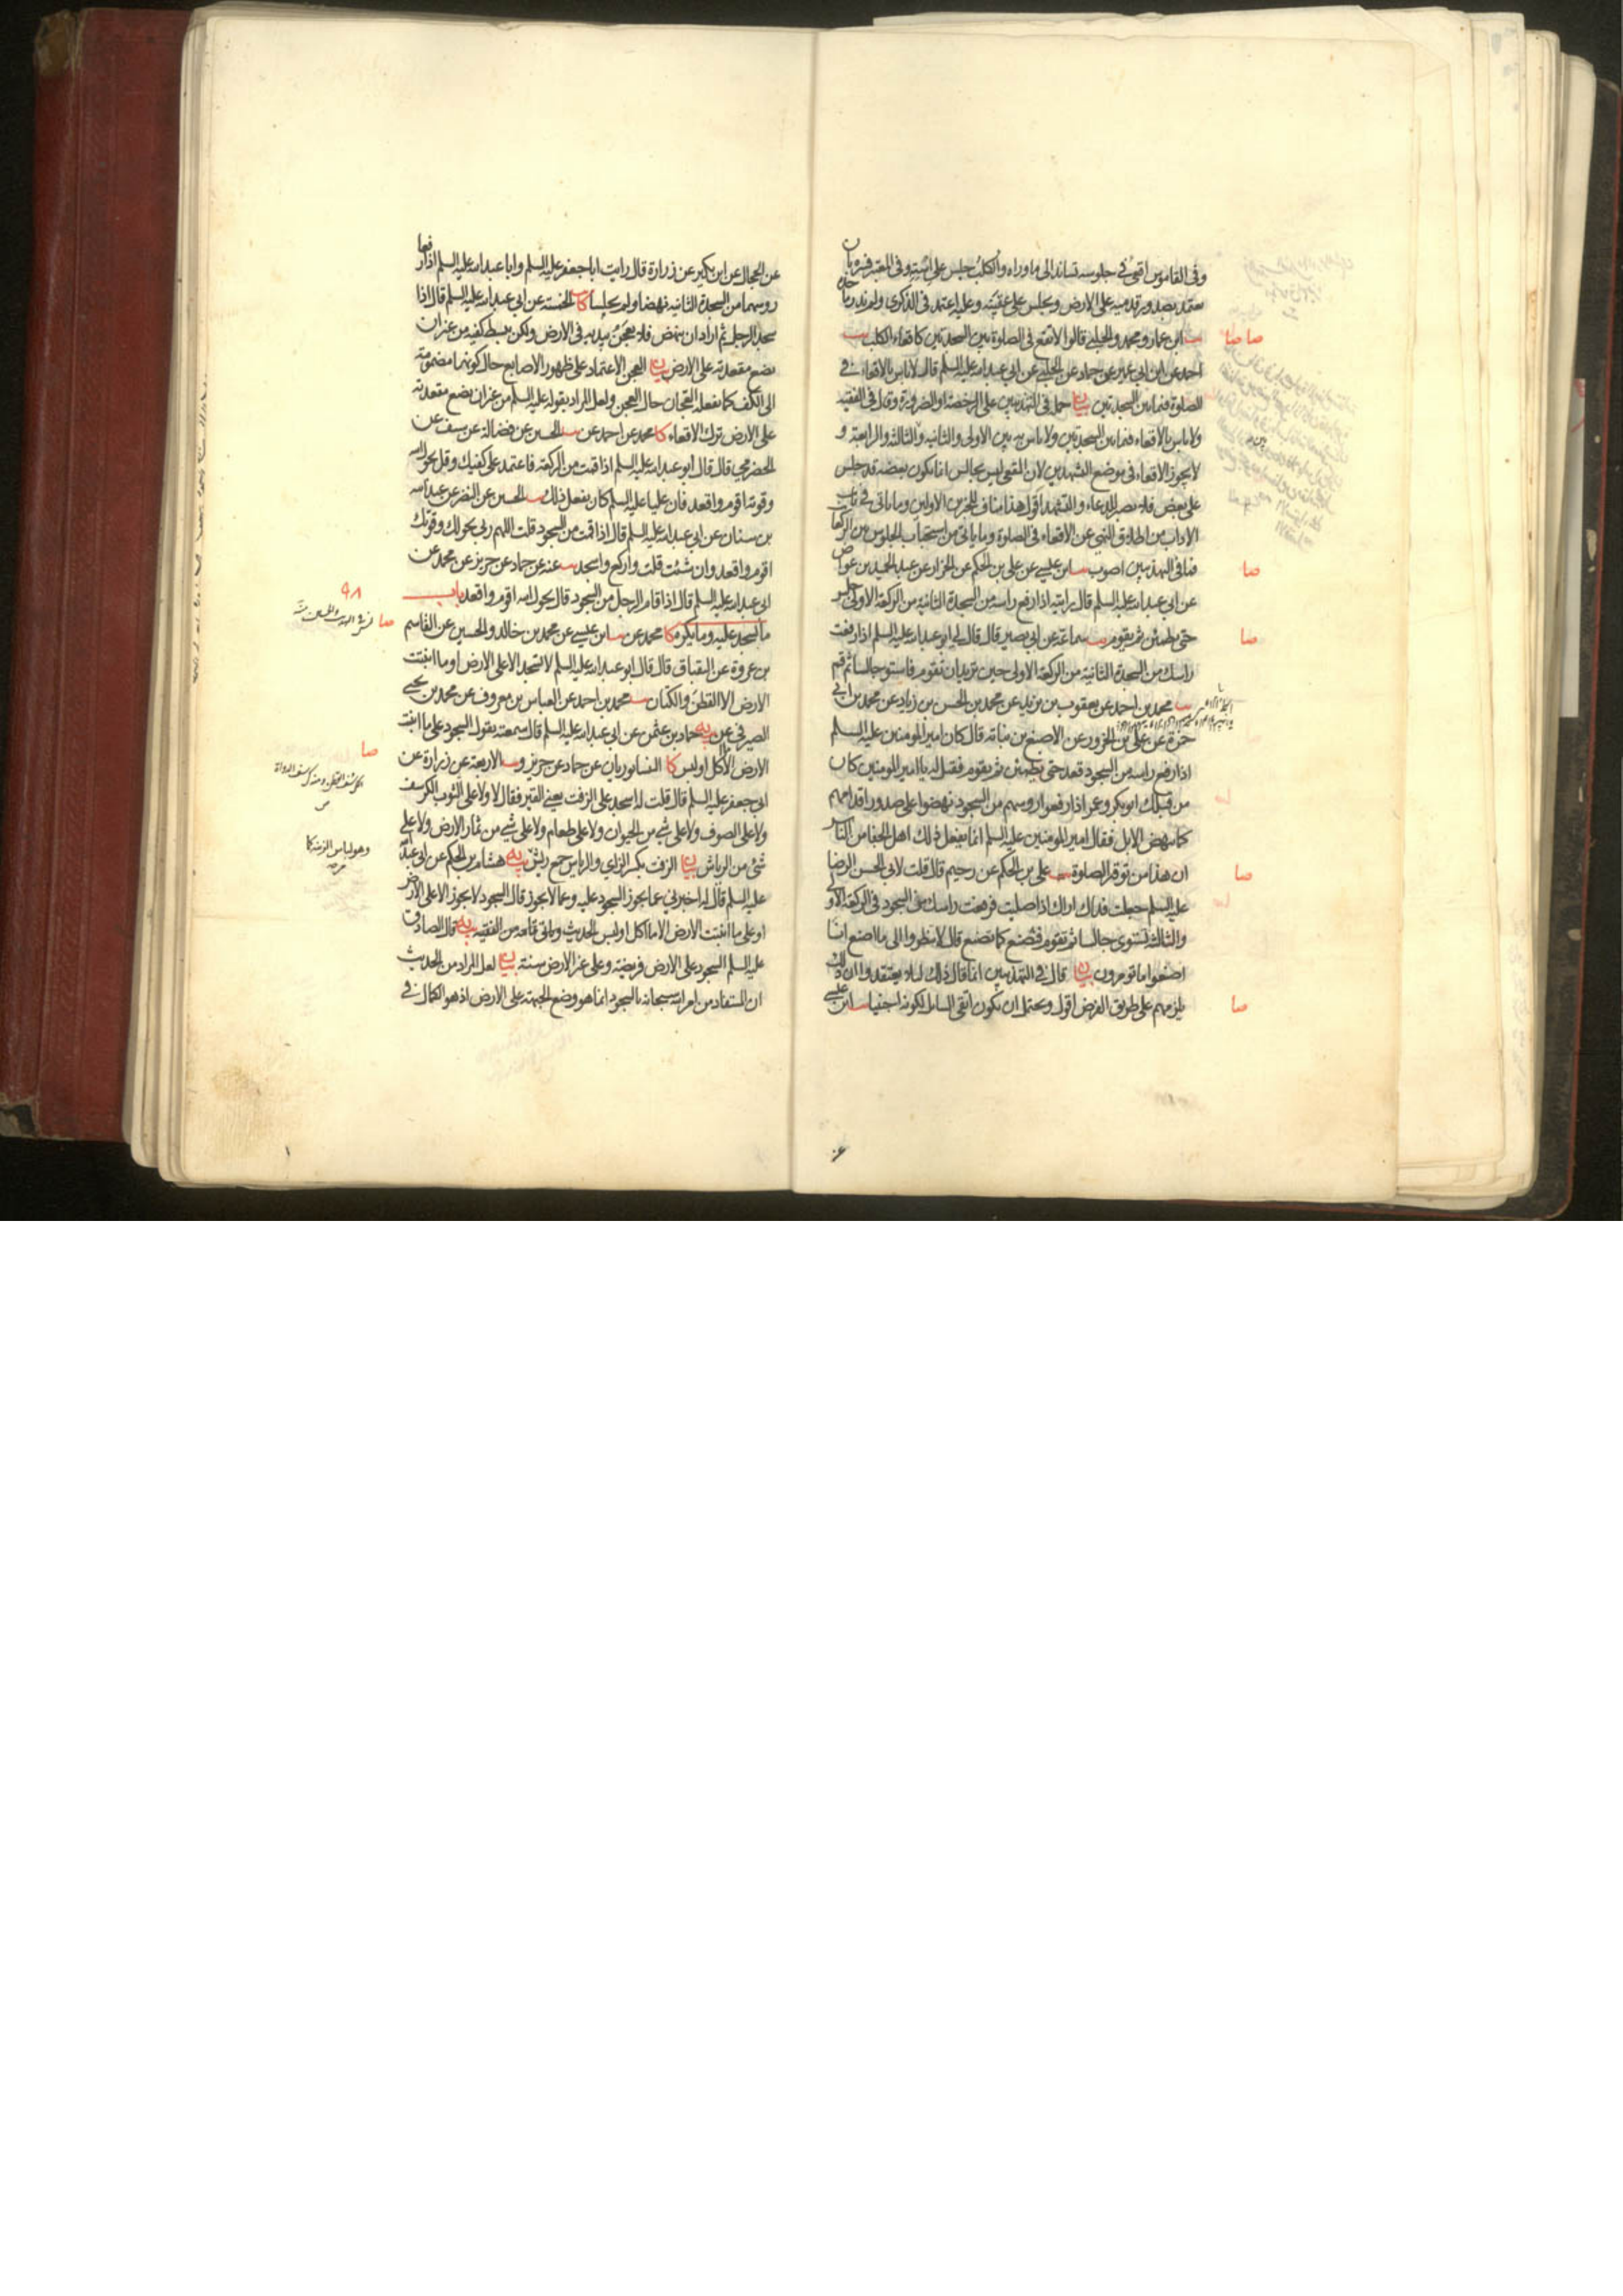 وفى القاموس اقعى فى جلوسه تساند الى ما وراه والكلب جلس على استه وفى المعتبر فسره بان
يعتمد بصدور قدميه على الارض ويجلس على عقبيه وعليه اعتمد فى الذكرى ولم نجد ماخذه
ابن عمار ومحمد والحلبى قالوا لا تقع فى الصلوة بين السجدتين كاقعاء الكلب
احمد عن ابن ابى عمير عن حماد عن الحلبى عن ابى عبد الله عليه السلم قال لا باس بالاقعاء فى
الصلوة فيما بين السجدتين بيان حمل فى التهذيبين على الرخصة او الضرورة وقال فى الفقيه
ولا باس بالاقعاء فيما بين السجدتين ولا باس به بين الاولى والثانية وبين الثالثة والرابعة و
لا يجوز الاقعاء فى موضع التشهدين لان المقعى ليس بجالس انما يكون بعضه قد جلس
على بعض فلا يصبر للدعاء والتشهد اقول هذا مناف للخبرين الاولين وما ياتى فى باب
الاداب من اطلاق النهى عن الاقعاء فى الصلوة وما ياتى من استحباب الجلوس من
فما فى التهذيبين اصوب ابن عيسى عن على بن الحكم عن الخزاز عن عبد الحميد بن عواض
عن ابى عبد الله عليه السلم قال رايته اذا رفع راسه من السجدة الثانية من الركعة الاولى جلس
حتى يطمئن ثم يقوم سماعة عن ابى بصير قال قال لى ابو عبد الله عليه السلم اذا رفعت
راسك من السجدة الثانية من الركعة الاولى حين تريد ان تقوم فاستو جالسا ثم قم
محمد بن احمد عن يعقوب بن يزيد عن محمد بن الحسن بن زياد عن محمد بن ابى
حمزة عن على بن الحزور عن الاصبغ بن نباتة قال كان امير المومنين عليه السلم
اذا رفع راسه من السجود قعد حتى يطمئن ثم يقوم فقيل له يا امير المومنين كان
من قبلك ابو بكر وعمر اذا رفعوا روسهم من السجود نهضوا على صدور اقدامهم
كما تنهض الابل فقال امير المومنين عليه السلم انما يفعل ذلك اهل الجفا من الناس
ان هذا من توقير الصلوة على بن الحكم عن رحيم قال قلت لابى الحسن الرضا
عليه السلم جعلت فداك اراك اذا صليت فرفعت راسك من السجود فى الركعة الاولى
والثالثة تستوى جالسا ثم تقوم فنصنع كما تصنع قال لا تنظروا الى ما اصنع انا
اصنعوا ما تومرون بيان قال فى التهذيبين انما قال ذلك لئلا يعتقدوا ان ذلك
يلزمهم على طريق الفرض اقول ويحتمل ان يكون اتقى السايل لكونه اجنبيا ابن عيسى
صا صا
صا
صا
صا
صا
عن الحجال عن ابن بكير عن زرارة قال رايت ابا جعفر عليه السلم وابا عبد الله عليه السلم اذا رفعا
روسهما من السجدة الثانية نهضا ولم يجلسا كا الخمسة عن ابى عبد الله عليه السلم قال اذا
سجد الرجل ثم اراد ان ينهض فلا يعجن بيديه فى الارض ولكن يبسط كفيه من غير ان
يضع مقعدته على الارض بيان العجن الاعتماد على ظهور الاصابع حال كونها مضمومة
الى الكف كما يفعله العجان حال العجن ولعل المراد بقوله عليه السلم من غير ان يضع مقعدته
على الارض ترك الاقعاء كا محمد عن احمد عن الحسين عن فضالة عن سيف عن
الحضرمى قال قال ابو عبد الله عليه السلم اذا قمت من الركعة فاعتمد على كفيك وقل بحول الله
وقوته اقوم واقعد فان عليا عليه السلم كان يفعل ذلك الحسين عن النضر عن عبد الله
بن سنان عن ابى عبد الله عليه السلم قال اذا قمت من السجود قلت اللهم ربى بحولك وقوتك
اقوم واقعد وان شئت قلت واركع واسجد عنه عن حماد عن حريز عن محمد عن
ابى عبد الله عليه السلم قال اذا قام الرجل من السجود قال بحول الله اقوم واقعد باب
ما يسجد عليه وما يكره كا محمد عن ابن عيسى عن محمد بن خالد والحسين عن القاسم
بن عروة عن البقباق قال قال ابو عبد الله عليه السلم لا تسجد الا على الارض او ما انبتت
الارض الا القطن والكتان محمد بن احمد عن العباس بن معروف عن محمد بن يحيى
الصيرفى عن يه حماد بن عثمن عن ابى عبد الله عليه السلم قال سمعته يقول السجود على ما انبتت
الارض الا ما اكل او لبس كا النيسابوريان عن حماد عن حريز و الاربعة عن زرارة عن
ابى جعفر عليه السلم قال قلت له اسجد على الزفت يعنى القير فقال لا ولا على الثوب الكرسف
ولا على الصوف ولا على شى من الحيوان ولا على طعام ولا على شى من ثمار الارض ولا على
شى من الرياش بيان الزفت بكسر الزاى والرياش جمع ريش يه هشام بن الحكم عن ابى عبد الله
عليه السلم قال له اخبرنى عما يجوز السجود عليه وعما لا يجوز قال السجود لا يجوز الا على الارض
او على ما انبتت الارض الا ما اكل او لبس الحديث وياتى تمامه من الفقيه يه قال الصادق
عليه السلم السجود على الارض فريضة وعلى غير الارض سنة بيان لعل المراد من الحديث
ان المستفاد من امر الله سبحانه بالسجود انما هو وضع الجبهة على الارض اذ هو الكمال فى
٩٨
صا
صا